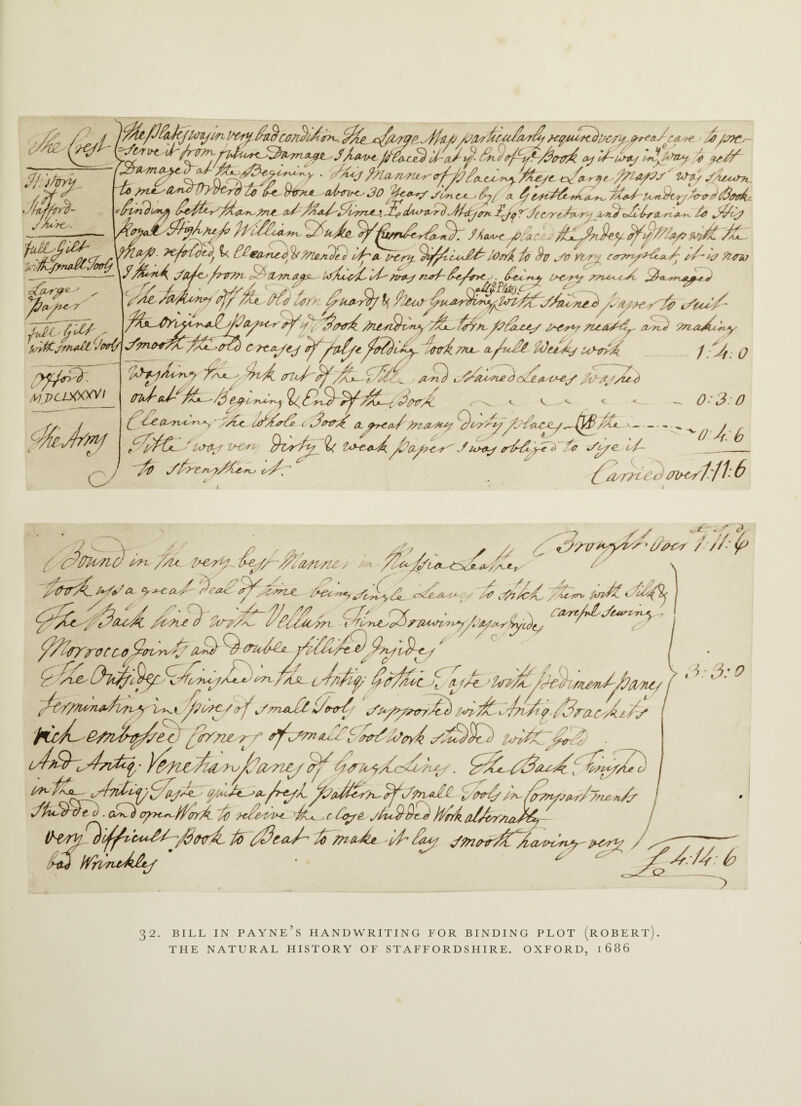 The Crest
History
of
Stafford-
Shire.
full Gilt
with small Tools
Large
Paper
full Gilt
with small Tools
Oxford.
MDCLXXXVI
The Army
The Plates was in very bad condition. The Large Map particularly required very great care to pre-
-serve it from future Damage I have placed it at ye. End of ye Book as it was in Way to gett
Damaged at the Begining. this Manner of placing these Large Maps was shewn
to me and Ordered to be done above 30 Years since by a Gentleman that understood Book-
-binding better than me at that Time: Edward Mason Esqr Secretary and Librarian to His
Royal Highness William Duke of Cumberland. I have placed the Index of ye Map with the
Map. refolded & Cleaned & Mended it a very difficult Work to do so very compleat, it is now
I think safe from Damage which it was not before, being very much Damaged
all ye Plates
The taking off the Old torn Guards & New guarding with Stained Paper to suit
the Original Paper of ye Book mending the torn places very neatly and making
smooth the old creases of false folding took me a full Weeks work 1:4:0
Washing the Ink out of the Title and Stained Leaves Washed
out at the Begining & End of the Book 0:3:0
Cleaning the whole Book a great many Dirty places - NB the
Title was very dirty & weak paper I was obliged to size it 0:4:6
to strengthen it.
Carried over 1:11:6
Brought Over 1:11:6
Bound in the very best Manner in Russia Leather
took up a great deal of time being single Leaves to stitch them with Silk
The Back lined with Vellum. fine Drawing Paper inside, careful Sewing
Morrocco Joints and double filleted Insides
The Outsides Finished in the Antiq Gothic Taste with Pediment Panes 3:3:0
terminating in spires of small Tools supported with Antiq. Brackets
Rich embossed Corners of small Tool Work studded with Gold
And Antiq. Venetian Panes of Lines. The Back Finished
in the Antiq; Taste quite a fresh Pattern of Small Tools in Compartments
Studded. and open Work to releive the close studded Work alternatly
very difficult Book to Beat to make it lay smooth having very
bad Wrinckles
£4:14:6
32. BILL IN PAYNE'S HANDWRITING FOR BINDING PLOT (ROBERT).
THE NATURAL HISTORY OF STAFFORDSHIRE. OXFORD, 1686